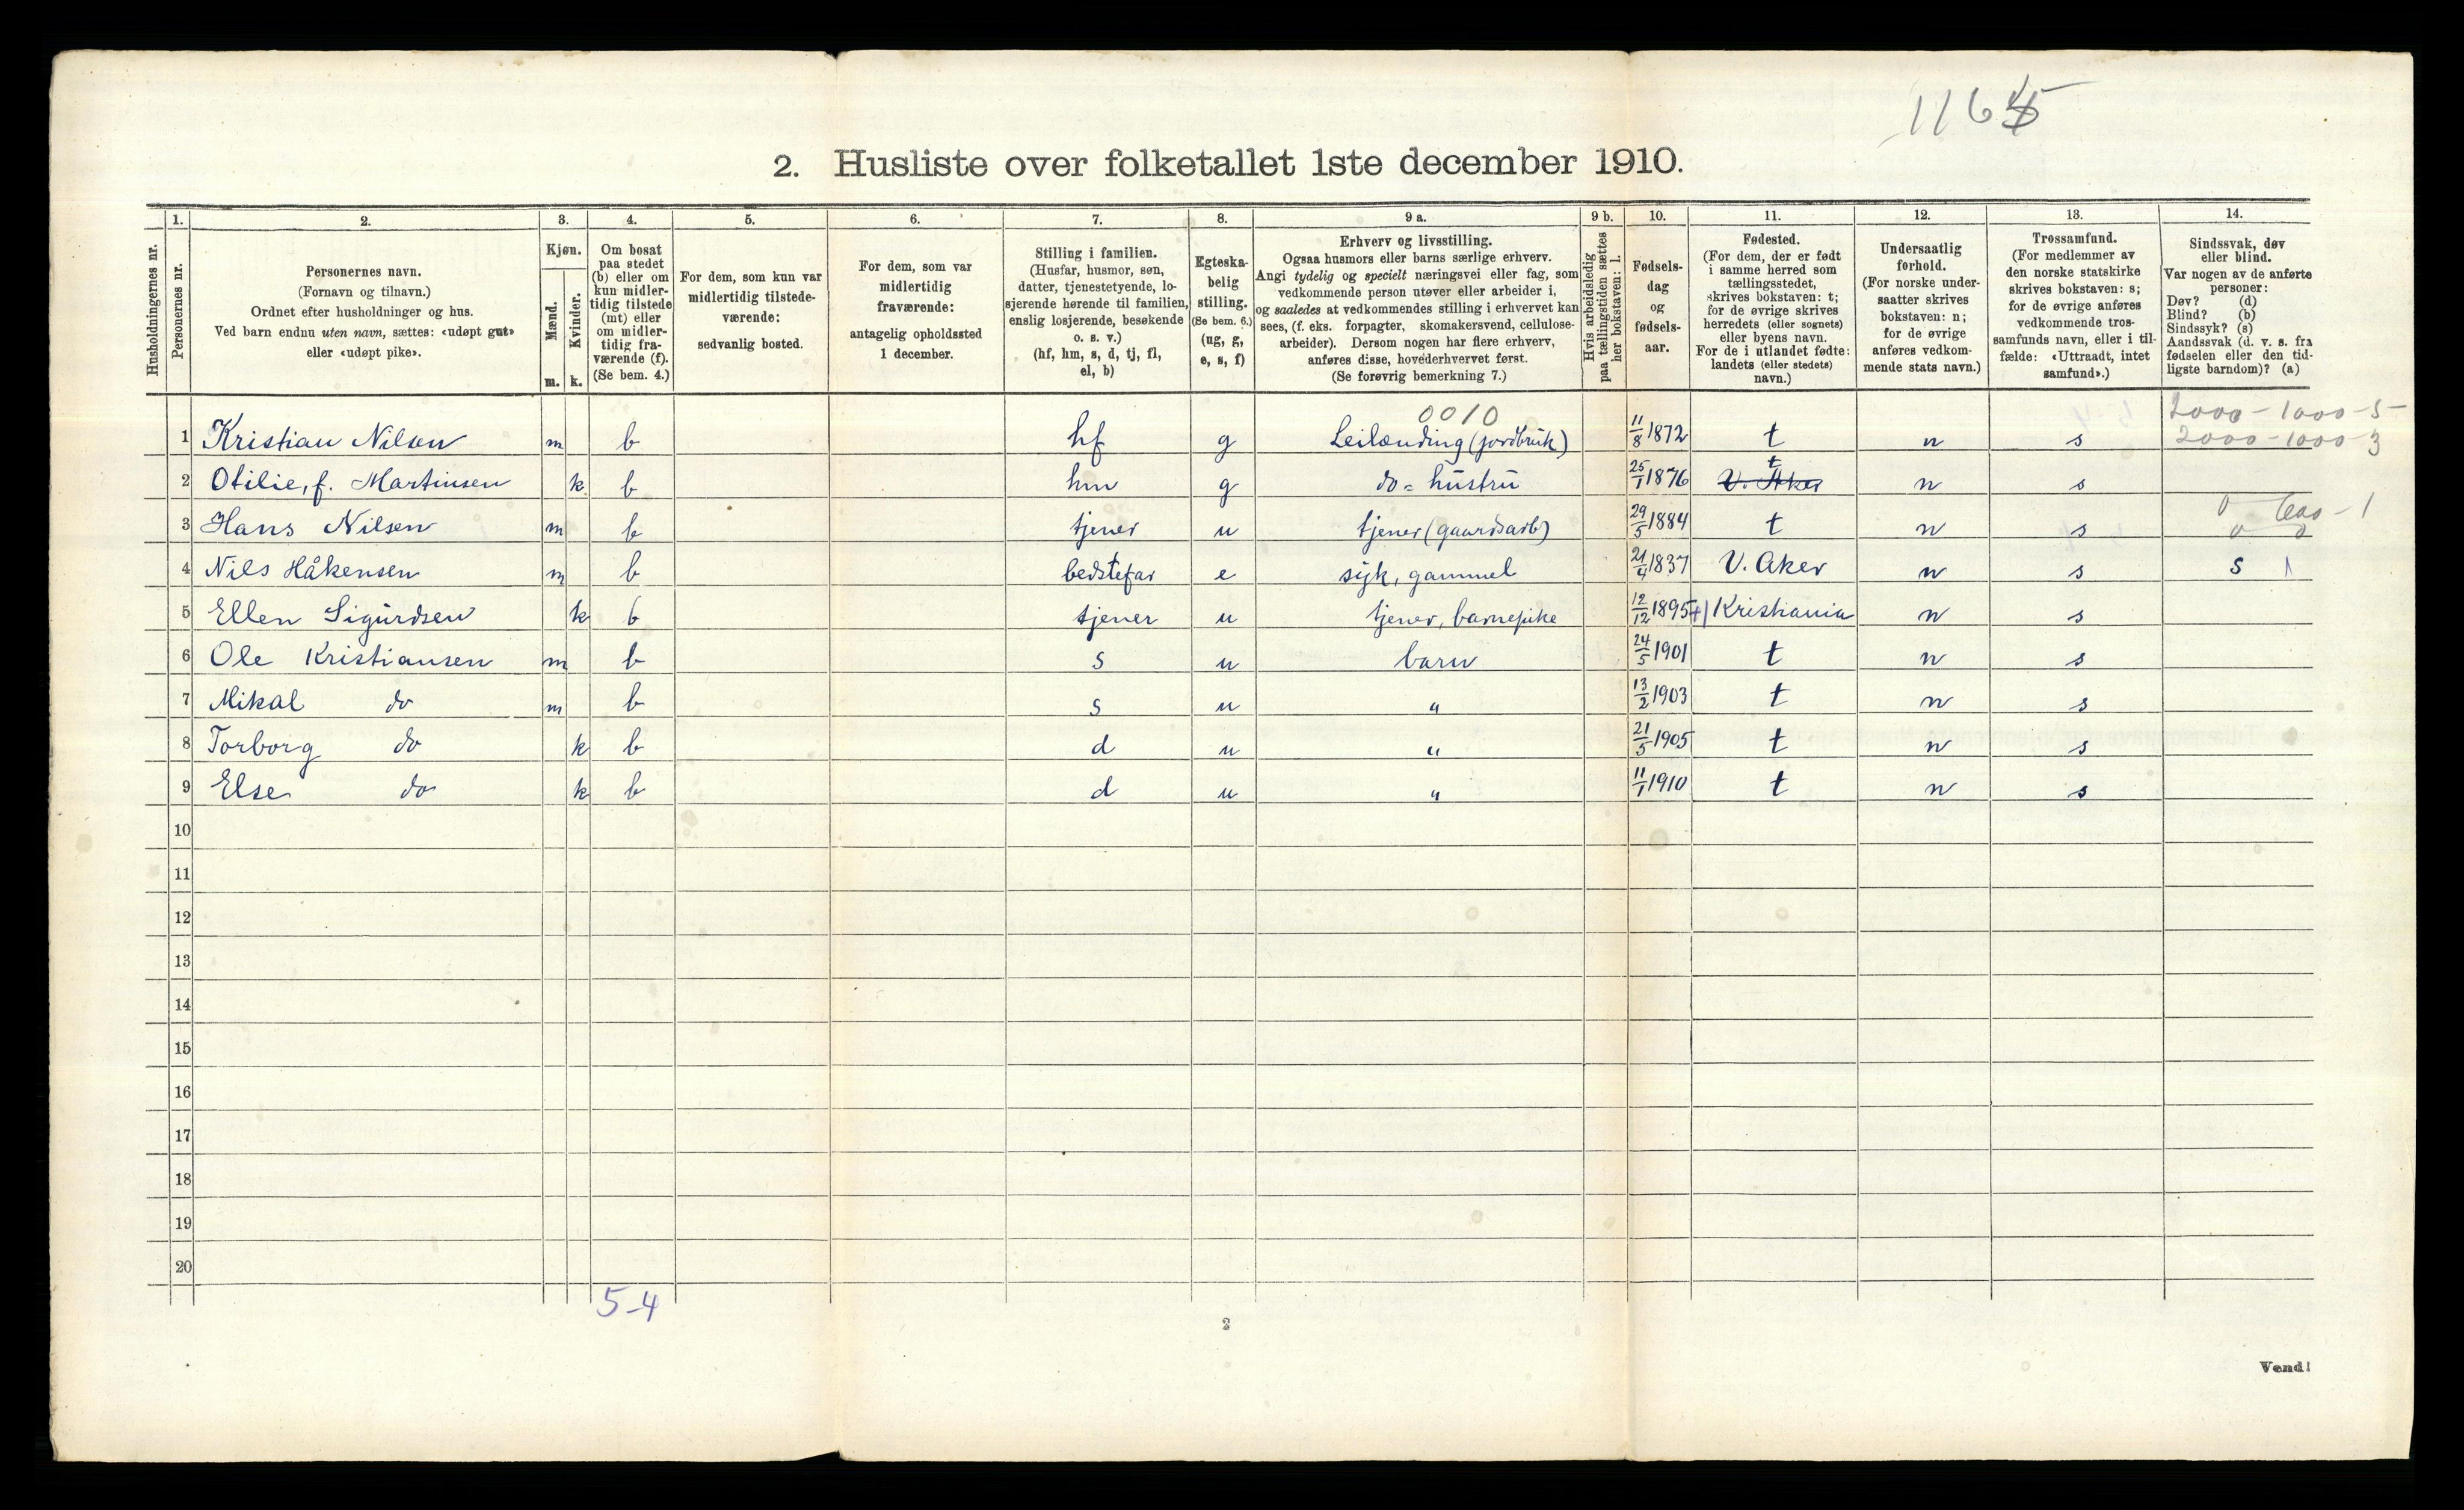 1165
2. Husliste over folketallet 1ste december 1910.
Husholdningernes nr.
1. Personernes nr.
2. Personernes navn.
(Fornavn og tilnavn.)
Ordnet efter husholdninger og hus.
Ved barn endnu uten navn, sættes: «udøpt gut»
eller «udøpt pike».
3. Kjøn.
Mænd. m.
Kvinder. k.
4. Om bosat
paa stedet
(b) eller om
kun midler-
tidig tilstede
(mt) eller
om midler-
tidig fra-
værende (f).
(Se bem. 4.)
5. For dem, som kun var
midlertidig tilstede-
værende:
sedvanlig bosted.
6. For dem, som var
midlertidig
fraværende:
antagelig opholdssted
1 december.
7. Stilling i familien.
(Husfar, husmor, søn,
datter, tjenestetyende, lo-
sjerende hørende til familien,
enslig losjerende, besøkende
o. s. v.)
(hf, hm, s, d, tj, fl,
el, b)
8. Egteska-
belig
stilling.
(Se bem. 6.)
(ug, g,
e, s, f)
9 a. Erhverv og livsstilling.
Ogsaa husmors eller barns særlige erhverv.
Angi tydelig og specielt næringsvei eller fag, som
vedkommende person utøver eller arbeider i,
og saaledes at vedkommendes stilling i erhvervet kan
sees, (f. eks. forpagter, skomakersvend, cellulose-
arbeider). Dersom nogen har flere erhverv,
anføres disse, hovederhvervet først.
(Se forøvrig bemerkning 7.)
9 b. Hvis arbeidsledig
paa tællingstiden sættes
her bokstaven: l.
10. Fødsels-
dag
og
fødsels-
aar.
11. Fødested.
(For dem, der er født
i samme herred som
tællingsstedet,
skrives bokstaven: t;
for de øvrige skrives
herredets (eller sognets)
eller byens navn.
For de i utlandet fødte:
landets (eller stedets)
navn.)
12. Undersaatlig
forhold.
(For norske under-
saatter skrives
bokstaven: n;
for de øvrige
anføres vedkom-
mende stats navn.)
13. Trossamfund.
(For medlemmer av
den norske statskirke
skrives bokstaven: s;
for de øvrige anføres
vedkommende tros-
samfunds navn, eller i til-
fælde: «Uttraadt, intet
samfund».)
14. Sindssvak, døv
eller blind.
Var nogen av de anførte
personer:
Døv? (d)
Blind? (b)
Sindssyk? (s)
Aandssvak (d. v. s. fra
fødselen eller den tid-
ligste barndom)? (a)
0010 2000-1000-5-
1 Kristian Nilsen m b hf g Leilænding (jordbruk) 11/8 1872 t n s 2000-1000-3
2 Otilie, f. Martinsen k b hm g do = hustru 25/1 1876 V. Aker t n s
3 Hans Nilsen m b tjener u tjener (gaardsarb) 29/5 1884 t n s
4 Nils Håkensen m b bedstefar e syk, gammel 21/4 1837 V. Aker n s s 1
5 Ellen Sigurdsen k b tjener u tjener, barnepike 12/12 1895 +) Kristiania n s
6 Ole Kristiansen m b s u barn 24/5 1901 t n s
7 Mikal do m b s u " 13/2 1903 t n s
8 Torborg do k b d u " 21/5 1905 t n s
9 Else do k b d u " 11/1 1910 t n s
10
11
12
13
14
15
16
17
18
19
20
5-4
2
Vend!